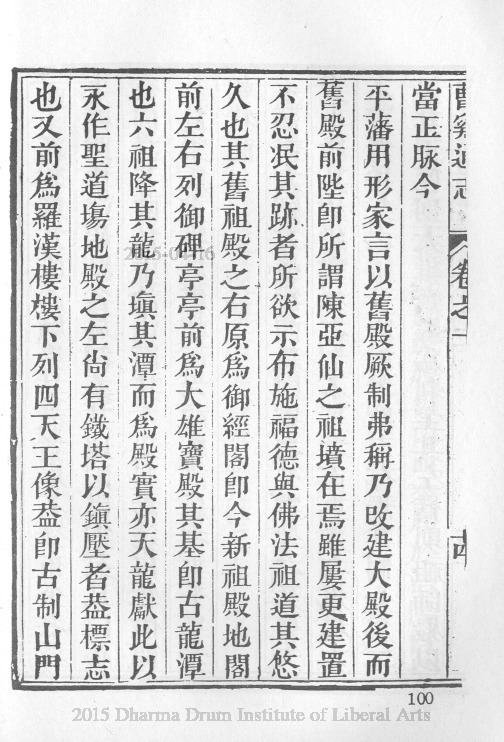 曹溪通志 卷之一
當正脉今
平藩用形家言以舊殿厥制弗稱乃改建大殿後而
舊殿前陛卽所謂陳亞仙之祖墳在焉雖屢更建置
不忍泯其跡者所欲示布施福德與佛法祖道其悠
久也其舊祖殿之右原爲御經閣卽今新祖殿地閣
前左右列御碑亭亭前爲大雄寶殿其基卽古龍潭
也六祖降其龍乃塡其潭而爲殿實亦天龍獻此以
永作聖道塲地殿之左尙有鐵塔以鎭壓者葢標志
也又前爲羅漢樓樓下列四天王像葢卽古制山門
100
2015 Dharma Drum Institute of Liberal Arts